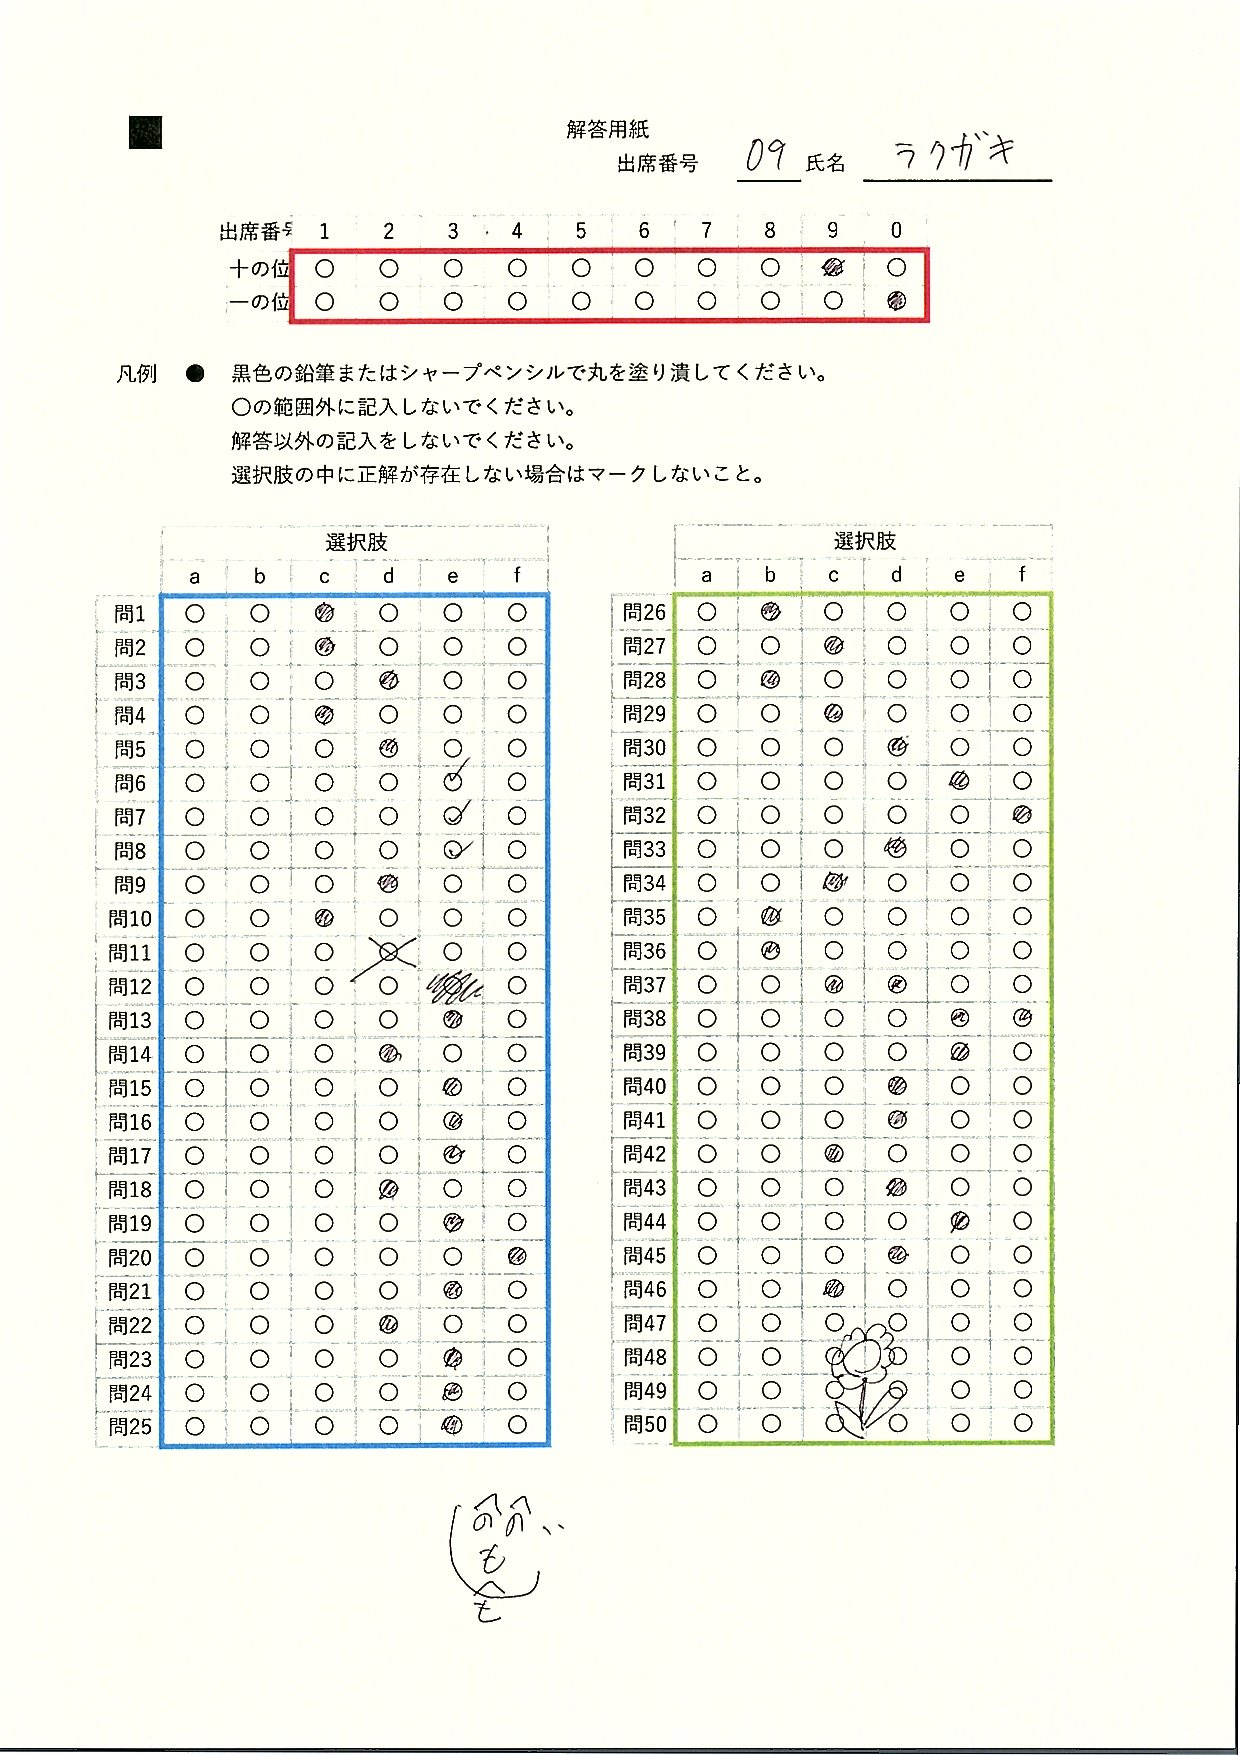 解答用紙
出席番号 09 氏名 ラクガキ
出席番号 1 2 3 4 5 6 7 8 9 0
十の位
一の位
凡例 ● 黒色の鉛筆またはシャープペンシルで丸を塗り潰してください。
〇の範囲外に記入しないでください。
解答以外の記入をしないでください。
選択肢の中に正解が存在しない場合はマークしないこと。
選択肢
a b c d e f
問1
問2
問3
問4
問5
問6
問7
問8
問9
問10
問11
問12
問13
問14
問15
問16
問17
問18
問19
問20
問21
問22
問23
問24
問25
選択肢
a b c d e f
問26
問27
問28
問29
問30
問31
問32
問33
問34
問35
問36
問37
問38
問39
問40
問41
問42
問43
問44
問45
問46
問47
問48
問49
問50
へへ
のの
も
へ
も